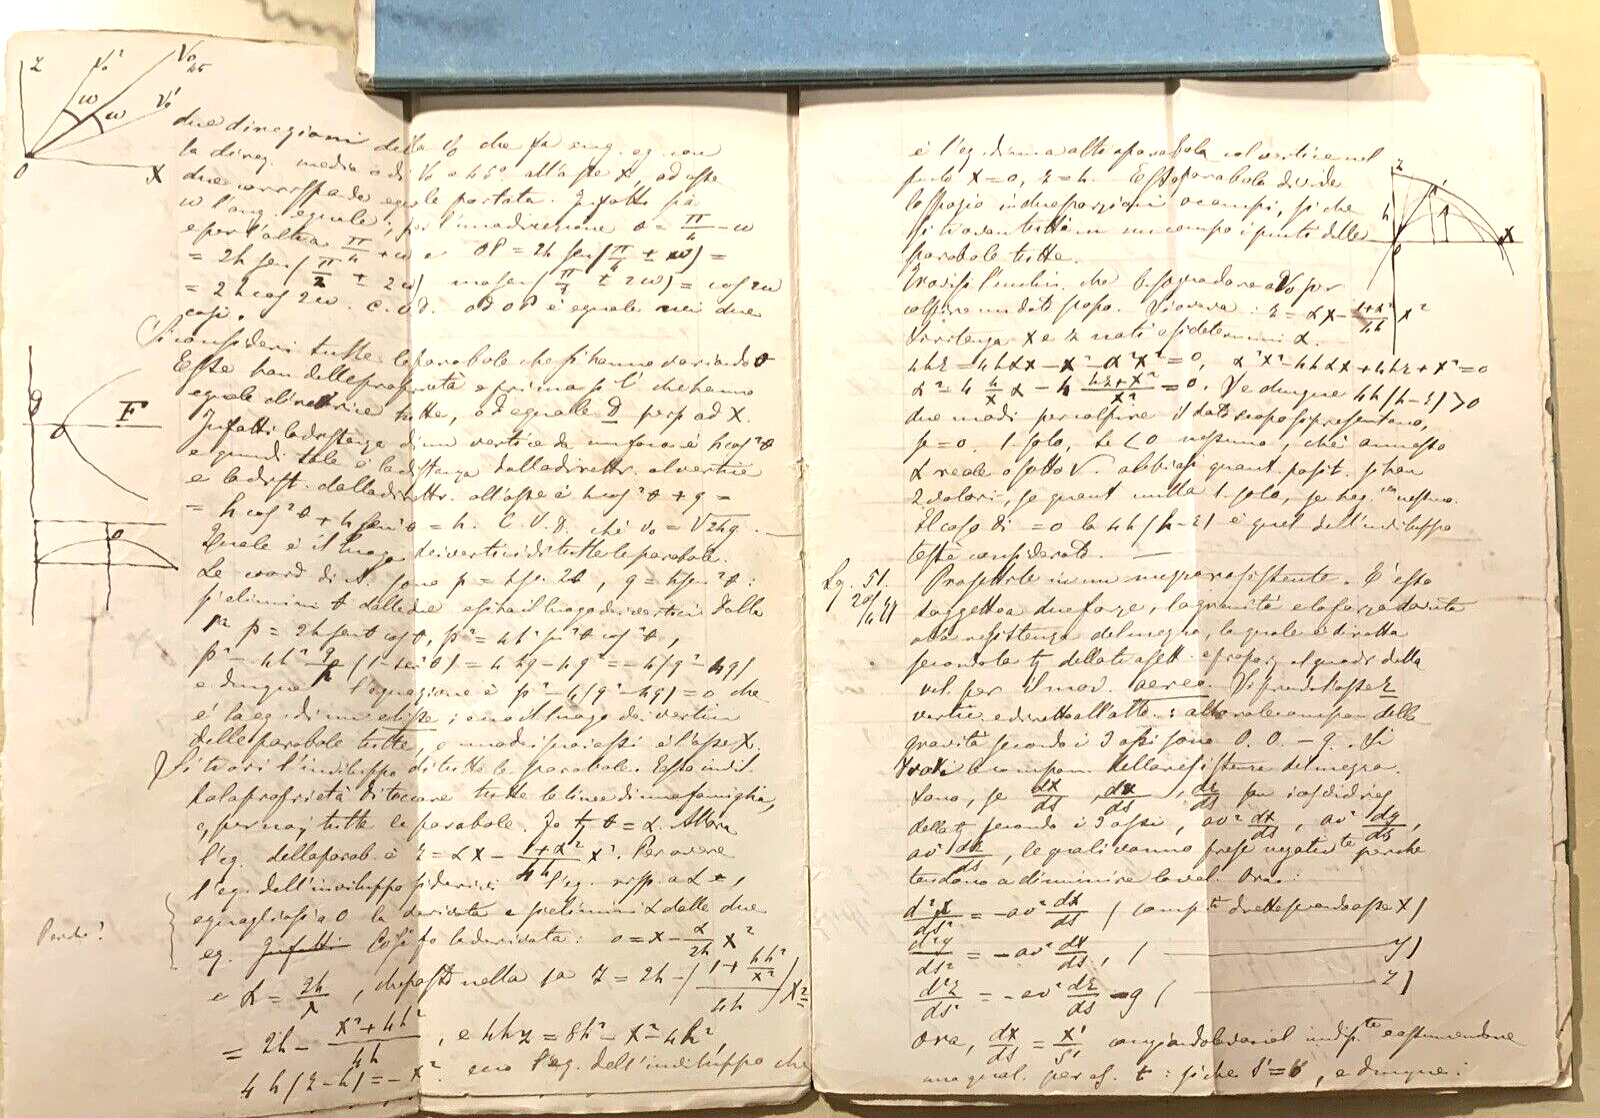 z
V₀²
V₀
45
V₀'
ω
ω
O
X
due direzioni della V₀ che fa ang. eg. con
la direz. media o di V₀ a 45° all'asse X, ad esse
due corrisponde eguale portata. Infatti sia
ω l'ang. eguale; per l'una direzione θ = π/4 - ω
e per l'altra π/4 + ω e OP = 2h sen(π/4 ± ω) =
= 2h sen(π/2 ± 2ω) ma sen(π/2 ± 2ω) = cos 2ω
= 2h cos 2ω. C.V.D. ed OP è eguale nei due
casi.
Si consideri tutte le parabole che si hanno variando θ
Esse han delle proprietà e prima si è che hanno
eguale direttrice tutte, ed eguale D perp ad X.
D
F
Infatti la distanza d'un vertice da un fuoco è h cos²θ
e quindi tale è la distanza dalla direttr. al vertice
e la dist. dalla direttr. all'asse è h cos²θ + q =
= h cos²θ + h sen²θ = h. C.V.D. chè v₀ = √2hg.
Quale è il luogo dei vertici di tutte le parabole.
Le coord di A. sono p = h sen 2θ, q = h sen²θ:
si elimini θ dalle due e si ha il luogo dei vertici. Dalla
1ª p = 2h senθ cosθ, p² = 4h² sen²θ cos²θ,
p² = 4h² q/h (1 - sen²θ) = 4hq - 4q² = -4(q² - hq)
e dunque l'equazione è p² - 4(q² - hq) = 0 che
è la eq. di un'elisse; ecco il luogo dei vertici
delle parabole tutte, e uno dei suoi assi è l'asse X.
Si trovi l'inviluppo di tutte le parabole. Esso invil.
ha la proprietà di toccare tutte le linee di una famiglia,
e, per noi, tutte le parabole. Se tg θ = α. Allora
l'eq. della parab. è z = αx - (1+α²)/4h x². Per avere
l'eq. dell'inviluppo si derivi l'eq. risp. a α,
eguagliasi a 0 la derivata e si elimini α dalle due
Perchè?
eq. Infatti Così fo la derivata: 0 = x - α/2h x²
e α = 2h/x, che posto nella 1ª z = 2h - (1 + 4h²/x²)/4h x² =
= 2h - (x² + 4h²)/4h, e 4hz = 8h² - x² - 4h²,
4h(z - h) = -x². ecco l'eq. dell'inviluppo che
è l'eq. di una altra parabola col vertice nel
punto x = 0, z = h. Essa parabola divide
lo spazio in due porzioni o campi, sì che
si trovan tutti in un campo i punti delle
parabole tutte.
z
h
O
X
Trovisi l'inclin. che bisogna dare a V₀ per
colpire un dato scopo. Si aveva: z = αx - (1+α²)/4h x²
Si ritenga x e z noti e si determini α.
4hz = 4hαx - x² - α²x² = 0, α²x² - 4hαx + 4hz + x² = 0
α² - 4 h/x α - 4 (hz + x²)/x² = 0. Se dunque 4h(h - z) > 0
due modi per colpire il dato scopo si presentano,
se = 0. 1 solo, se < 0 nessuno, chè ammesso
α reale e sotto √. abbiasi quant. posit. si han
2 valori, se quant nulla 1. solo, se neg. nessuno.
Il caso di = 0 la 4h(h - z) è quel dell'inviluppo
teste considerato.
Lez. 51.
20/4 71
Projettile in un mezzo resistente. È esso
soggetto a due forze, la gravità e la forza dovuta
alla resistenza del mezzo, la quale è diretta
secondo la tg della trajett. e proporz. al quadr. della
vel. per il mov. aereo. Si prenda l'asse z
vertic. e diretto all'alto: allora le compon. della
gravità secondo i 3 assi sono 0. 0. - g. Si
trovi le compon. della resistenza del mezzo.
Sono, se dx/ds, dy/ds, dz/ds son i cos di direz
della tg secondo i 3 assi, av² dx/ds, av² dy/ds,
av² dz/ds, le quali vanno prese negativᵗᵉ perchè
tendono a diminuire la vel. Ora:
d²x/ds² = -av² dx/ds ( comp.ᵗⁱ dirette secondo asse X)
d²y/ds² = -av² dy/ds, ( ——— y)
d²z/ds² = -av² dz/ds - g ( ——— z)
Ora, dx/ds = x'/s' cangiando la variabil indip.ᵗᵉ e assumendone
una qual. per es. t: sì che t' = 1, e dunque: